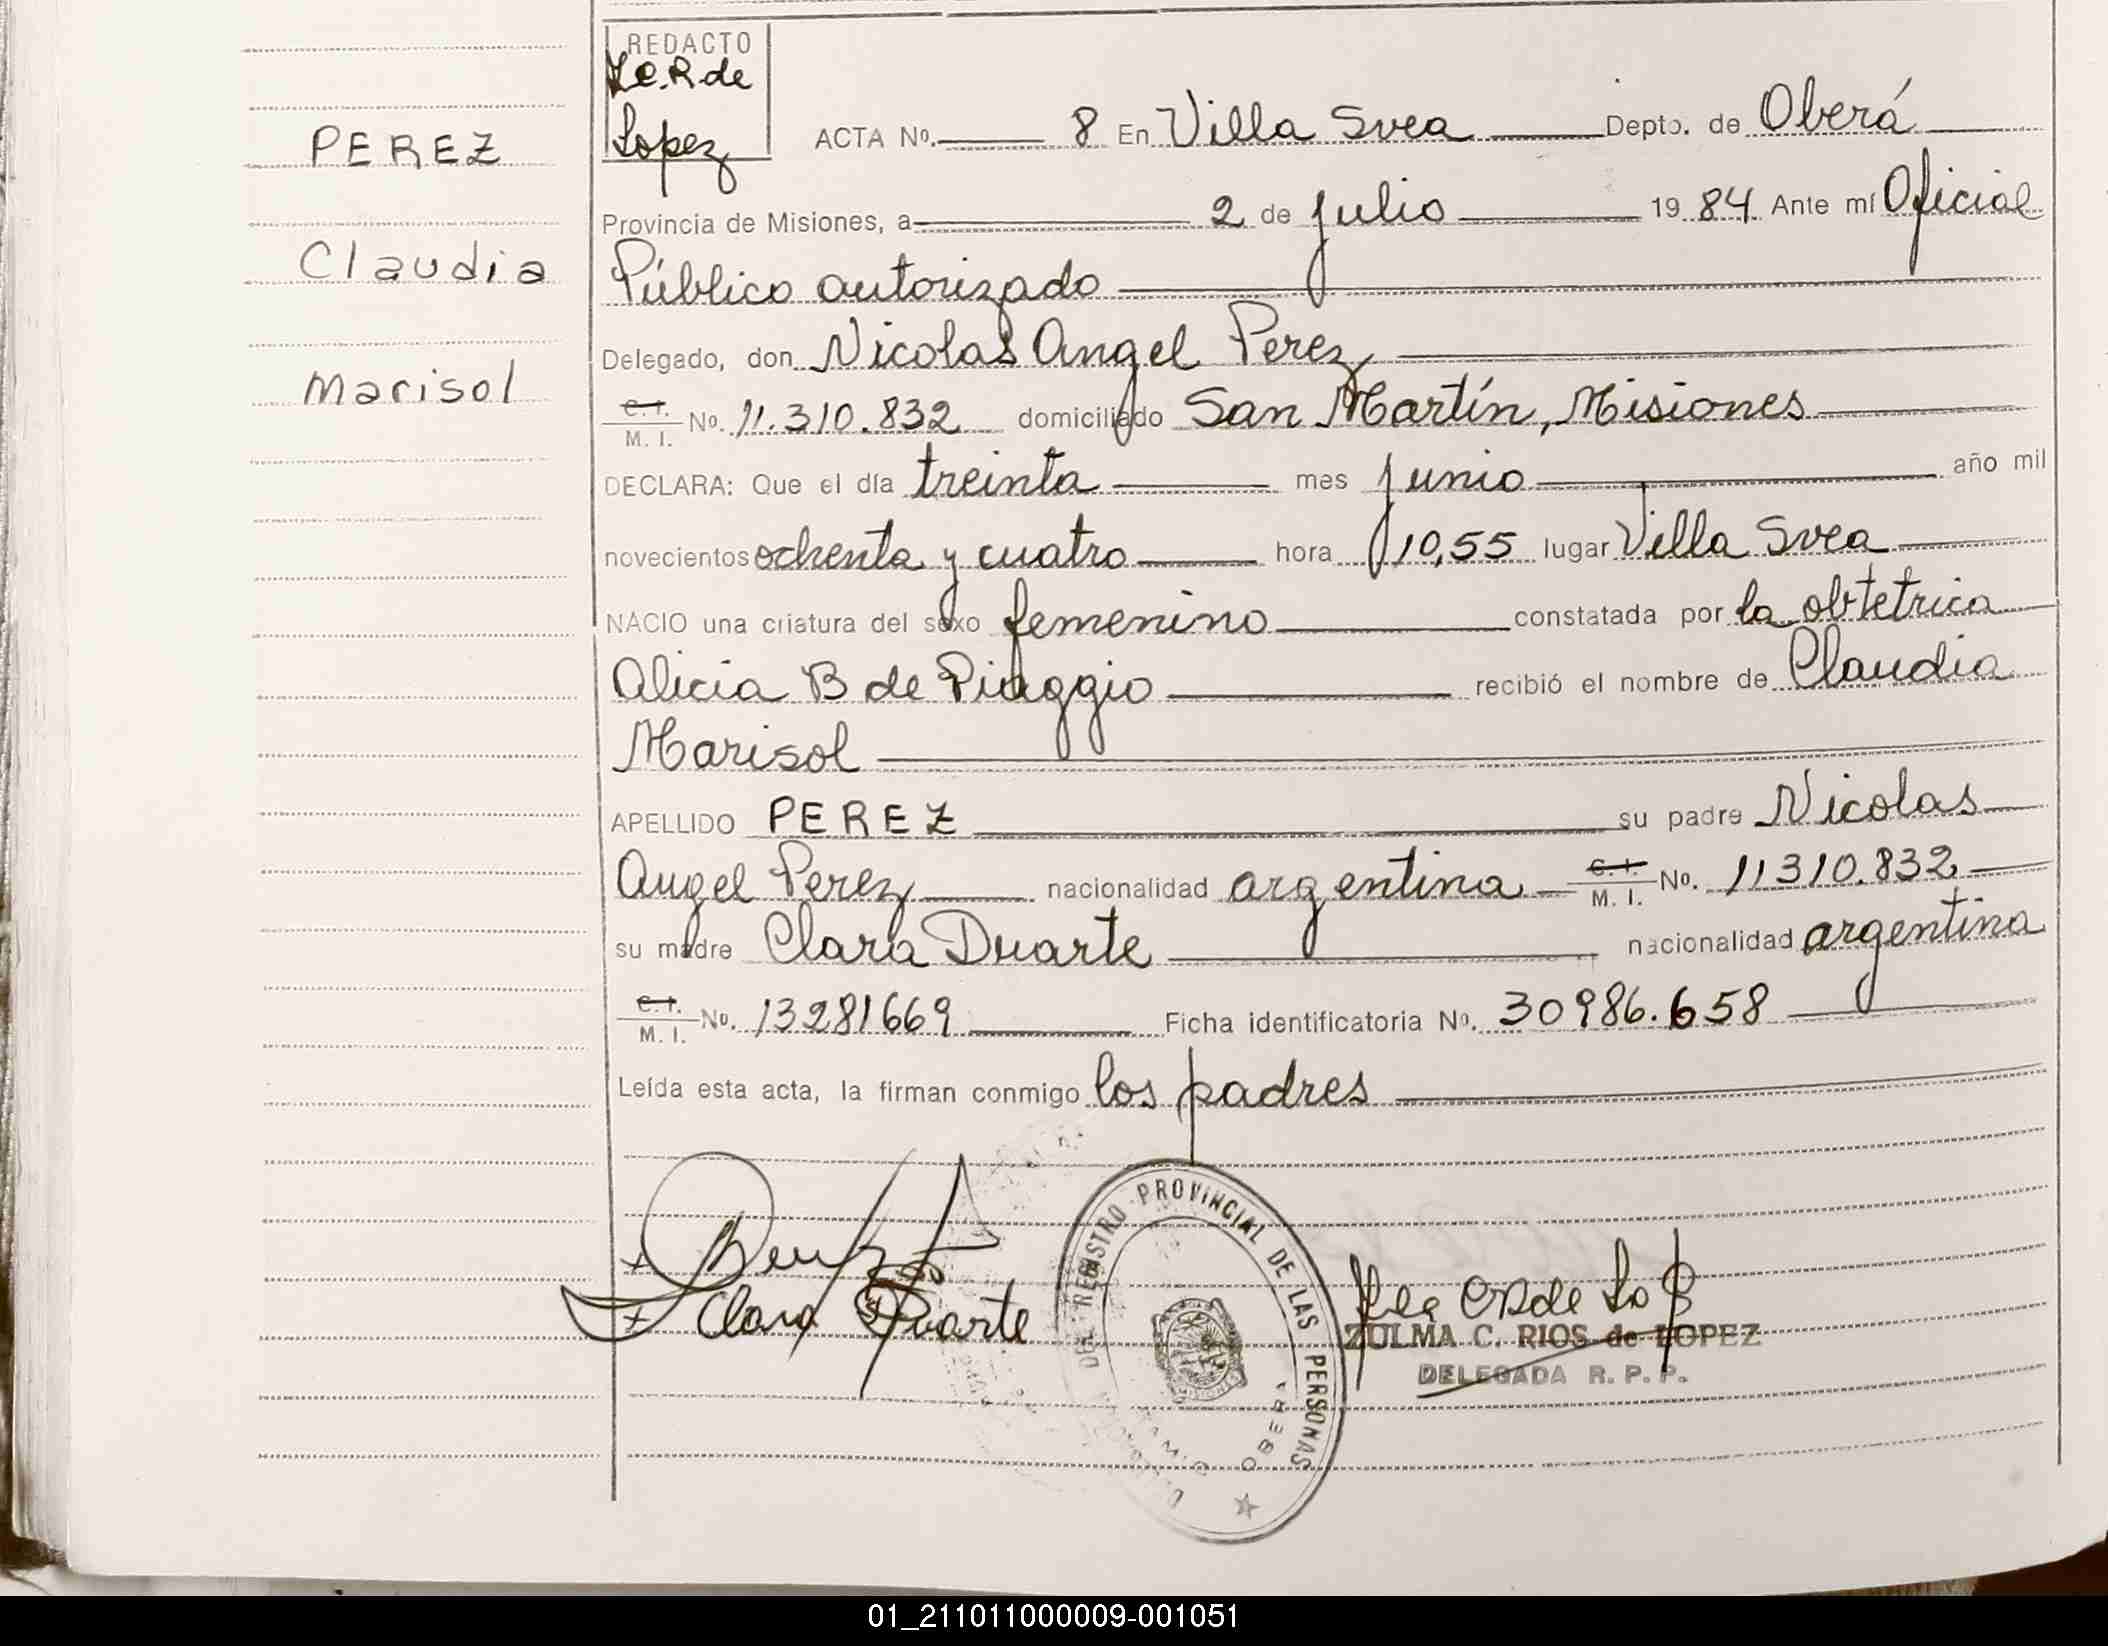 REDACTO
Z.C.R. de
Lopez
PEREZ
Claudia
Marisol
ACTA Nº. 8 En Villa Svea Depto. de Oberá
Provincia de Misiones, a 2 de Julio 1984 Ante mí Oficial
Público autorizado
Delegado, don Nicolas Angel Perez
C.I. M. I. Nº. 11.310.832 domiciliado San Martín, Misiones
DECLARA: Que el día treinta mes junio año mil
novecientos ochenta y cuatro hora 10,55 lugar Villa Svea
NACIO una criatura del sexo femenino constatada por la obtetrica
Alicia B de Piaggio recibió el nombre de Claudia
Marisol
APELLIDO PEREZ su padre Nicolas
Angel Perez nacionalidad argentina C.I. M. I. Nº. 11310.832
su madre Clara Duarte nacionalidad argentina
C.I. M. I. Nº. 13281669 Ficha identificatoria Nº. 30986.658
Leída esta acta, la firman conmigo los padres
Clara Duarte
REGISTRO PROVINCIAL DE LAS PERSONAS
OBERA
ZULMA C. RIOS de LOPEZ
DELEGADA R. P. P.
01_211011000009-001051